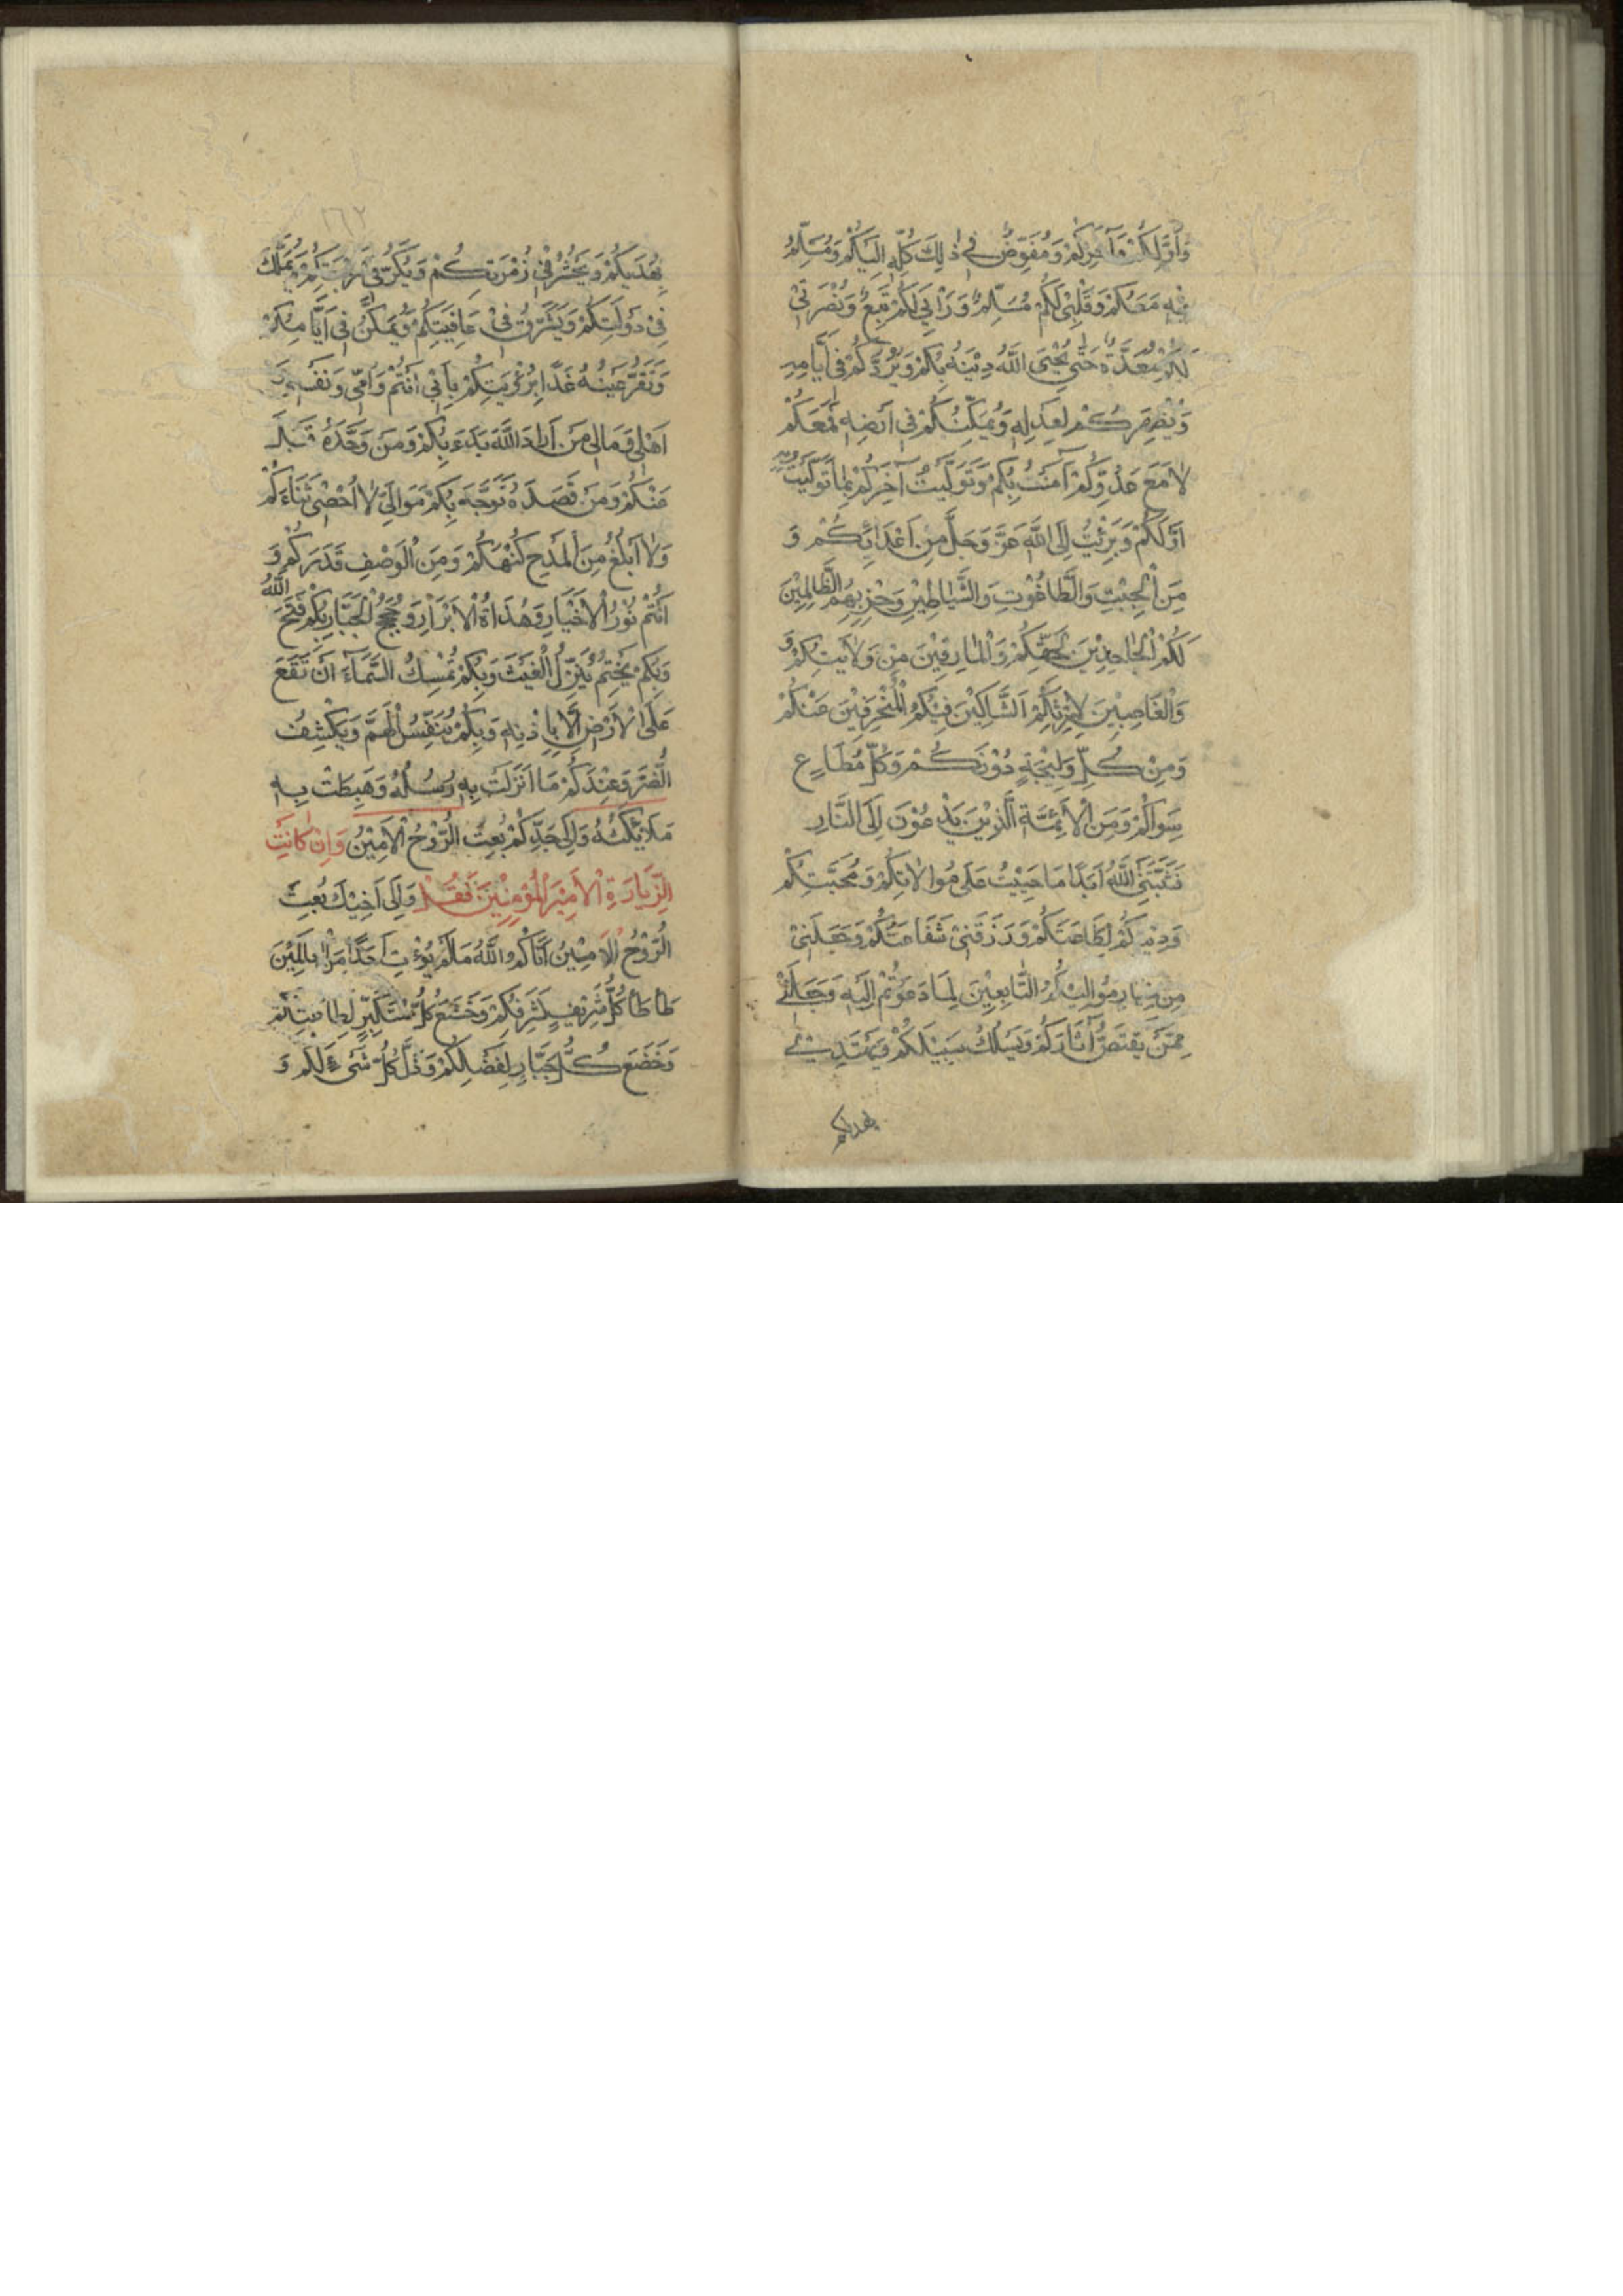 وَاَوَّلِكُمْ وَآخِرِكُمْ وَمُفَوِّضٌ فِي ذٰلِكَ كُلِّهِ اِلَيْكُمْ وَمُسَلِّمٌ
فِيهِ مَعَكُمْ وَقَلْبِيْ لَكُمْ مُسَلِّمٌ وَرَاْيِيْ لَكُمْ تَبَعٌ وَنُصْرَتِيْ
لَكُمْ مُعَدَّةٌ حَتّٰى يُحْيِىَ اللّٰهُ دِيْنَهُ بِكُمْ وَيَرُدَّكُمْ فِى اَيَّامِهِ
وَيُظْهِرَكُمْ لِعَدْلِهِ وَيُمَكِّنَكُمْ فِى اَرْضِهِ فَمَعَكُمْ مَعَكُمْ
لَا مَعَ عَدُوِّكُمْ آمَنْتُ بِكُمْ وَتَوَلَّيْتُ آخِرَكُمْ بِمَا تَوَلَّيْتُ بِهِ
اَوَّلَكُمْ وَبَرِئْتُ اِلَى اللّٰهِ عَزَّ وَجَلَّ مِنْ اَعْدَائِكُمْ وَ
مِنَ الْجِبْتِ وَالطَّاغُوْتِ وَالشَّيَاطِيْنِ وَحِزْبِهِمُ الظَّالِمِيْنَ
لَكُمُ الْجَاحِدِيْنَ لِحَقِّكُمْ وَالْمَارِقِيْنَ مِنْ وَلَايَتِكُمْ وَ
وَالْغَاصِبِيْنَ لِاِرْثِكُمْ الشَّاكِيْنَ فِيْكُمُ الْمُنْحَرِفِيْنَ عَنْكُمْ
وَمِنْ كُلِّ وَلِيْجَةٍ دُوْنَكُمْ وَكُلِّ مُطَاعٍ
سِوَاكُمْ وَمِنَ الْاَئِمَّةِ الَّذِيْنَ يَدْعُوْنَ اِلَى النَّارِ
فَثَبَّتَنِيَ اللّٰهُ اَبَدًا مَا حَيِيْتُ عَلٰى مُوَالَاتِكُمْ وَمَحَبَّتِكُمْ
وَدِيْنِكُمْ لِطَاعَتِكُمْ وَرَزَقَنِيْ شَفَاعَتَكُمْ وَجَعَلَنِيْ
مِنْ خِيَارِ مَوَالِيْكُمُ التَّابِعِيْنَ لِمَا دَعَوْتُمْ اِلَيْهِ وَجَعَلَنِيْ
مِمَّنْ يَقْتَصُّ آثَارَكُمْ وَيَسْلُكُ سَبِيْلَكُمْ وَيَهْتَدِيْ
بهديكم
١٦٢
بِهُدَيكُمْ وَيُحْشَرُ فِيْ زُمْرَتِكُمْ وَيَكُرُّ فِيْ رَجْعَتِكُمْ وَيُمَلَّكُ
فِيْ دَوْلَتِكُمْ وَيُشَرَّفُ فِيْ عَافِيَتِكُمْ وَيُمَكَّنُ فِيْ اَيَّامِكُمْ
وَتَقَرُّ عَيْنُهُ غَدًا بِرُؤْيَتِكُمْ بِاَبِيْ اَنْتُمْ وَاُمِّيْ وَنَفْسِيْ وَ
اَهْلِيْ وَمَالِيْ مَنْ اَرَادَ اللّٰهَ بَدَءَ بِكُمْ وَمَنْ وَحَّدَهُ قَبِلَ
عَنْكُمْ وَمَنْ قَصَدَهُ تَوَجَّهَ بِكُمْ مَوَالِيَّ لَا اُحْصِيْ ثَنَاءَكُمْ
وَلَا اَبْلُغُ مِنَ الْمَدْحِ كُنْهَكُمْ وَمِنَ الْوَصْفِ قَدْرَكُمْ وَ
اَنْتُمْ نُوْرُ الْاَخْيَارِ وَهُدَاةُ الْاَبْرَارِ وَحُجَجُ الْجَبَّارِ بِكُمْ فَتَحَ اللّٰهُ
وَبِكُمْ يَخْتِمُ يُنَزِّلُ الْغَيْثَ وَبِكُمْ تُمْسِكُ السَّمَاءَ اَنْ تَقَعَ
عَلَى الْاَرْضِ اِلَّا بِاِذْنِهِ وَبِكُمْ يُنَفِّسُ الْهَمَّ وَيَكْشِفُ
الضُّرَّ وَعِنْدَكُمْ مَا اَنْزَلَتْ بِهِ رُسُلُهُ وَهَبَطَتْ بِهِ
مَلَائِكَتُهُ وَاِلٰى جَدِّكُمْ بُعِثَ الرُّوْحُ الْاَمِيْنُ وَاِنْ كَانَتِ
الزِّيَارَةِ الْاَمِيْرِ الْمُؤْمِنِيْنَ فَقُلْ وَاِلٰى اَخِيْكَ بُعِثَ
الرُّوْحُ الْاَمِيْنُ اٰتَاكُمُ اللّٰهُ مَا لَمْ يُؤْتِ اَحَدًا مِنَ الْعَالَمِيْنَ
طَأْطَأَ كُلُّ شَرِيْفٍ لِشَرَفِكُمْ وَخَشَعَ كُلُّ مُتَكَبِّرٍ لِطَاعَتِكُمْ
وَخَضَعَ كُلُّ جَبَّارٍ لِفَضْلِكُمْ وَذَلَّ كُلُّ شَىْءٍ لَكُمْ وَ